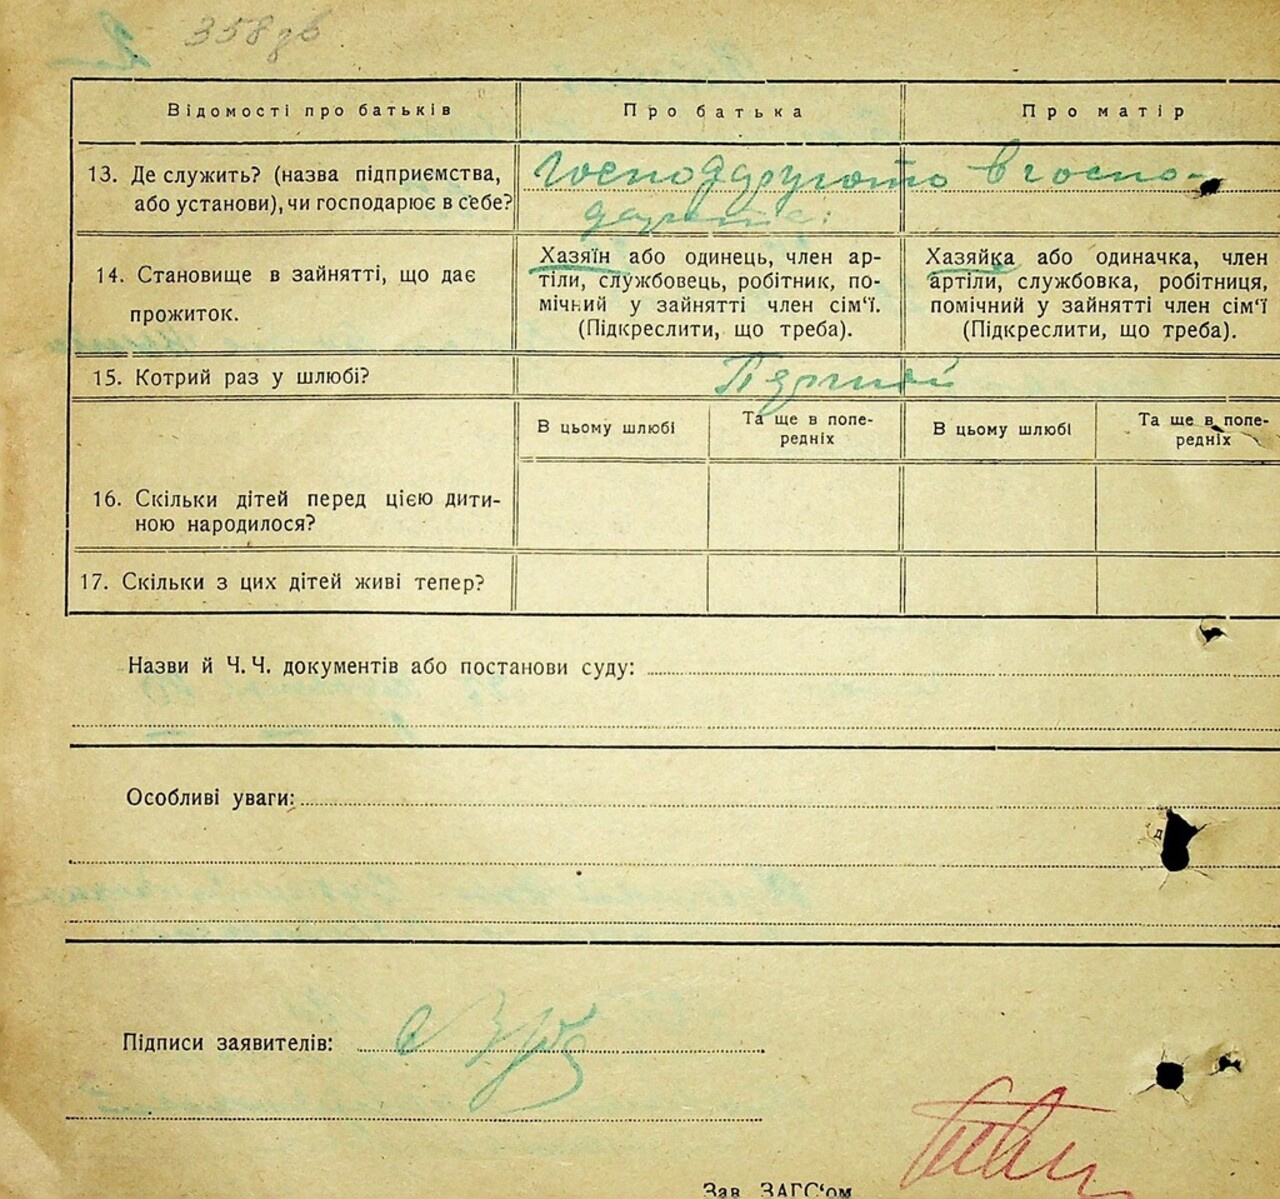 358 зв
Відомості про батьків
Про батька
Про матір
13. Де служить? (назва підприємства,
або установи), чи господарює в себе?
Господарують в госпо-
дарстві
14. Становище в зайнятті, що дає
прожиток.
Хазяїн або одинець, член ар-
тіли, службовець, робітник, по-
мічний у зайнятті член сім‘ї.
(Підкреслити, що треба).
Хазяйка або одиначка, член
артіли, службовка, робітниця,
помічний у зайнятті член сім‘ї
(Підкреслити, що треба).
15. Котрий раз у шлюбі?
В цьому шлюбі
Та ще в попе-
редніх
В цьому шлюбі
Та ще в попе-
редніх
16. Скільки дітей перед цією дити-
ною народилося?
17. Скільки з цих дітей живі тепер?
Назви й Ч. Ч. документів або постанови суду:
Особливі уваги:
Підписи заявителів:
Зав. ЗАГС‘ом